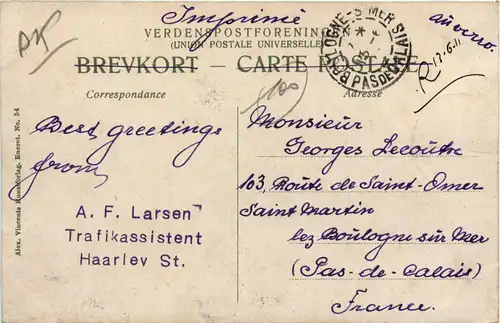 Imprimé
VERDENSPOSTFORENINGEN
(UNION POSTALE UNIVERSELLE)
BREVKORT — CARTE POSTALE
au verso.
R 17-6-11
100
Correspondance
Adresse
Best greetings
from
A. F. Larsen
Trafikassistent
Haarlev St.
Monsieur
Georges Lecouthe
103, Route de Saint-Omer
Saint Martin
lez Boulogne sur Mer
(Pas-de-Calais)
France.
BOULOGNE-S-MER
PAS DE CALAIS
Eneret. No. 54